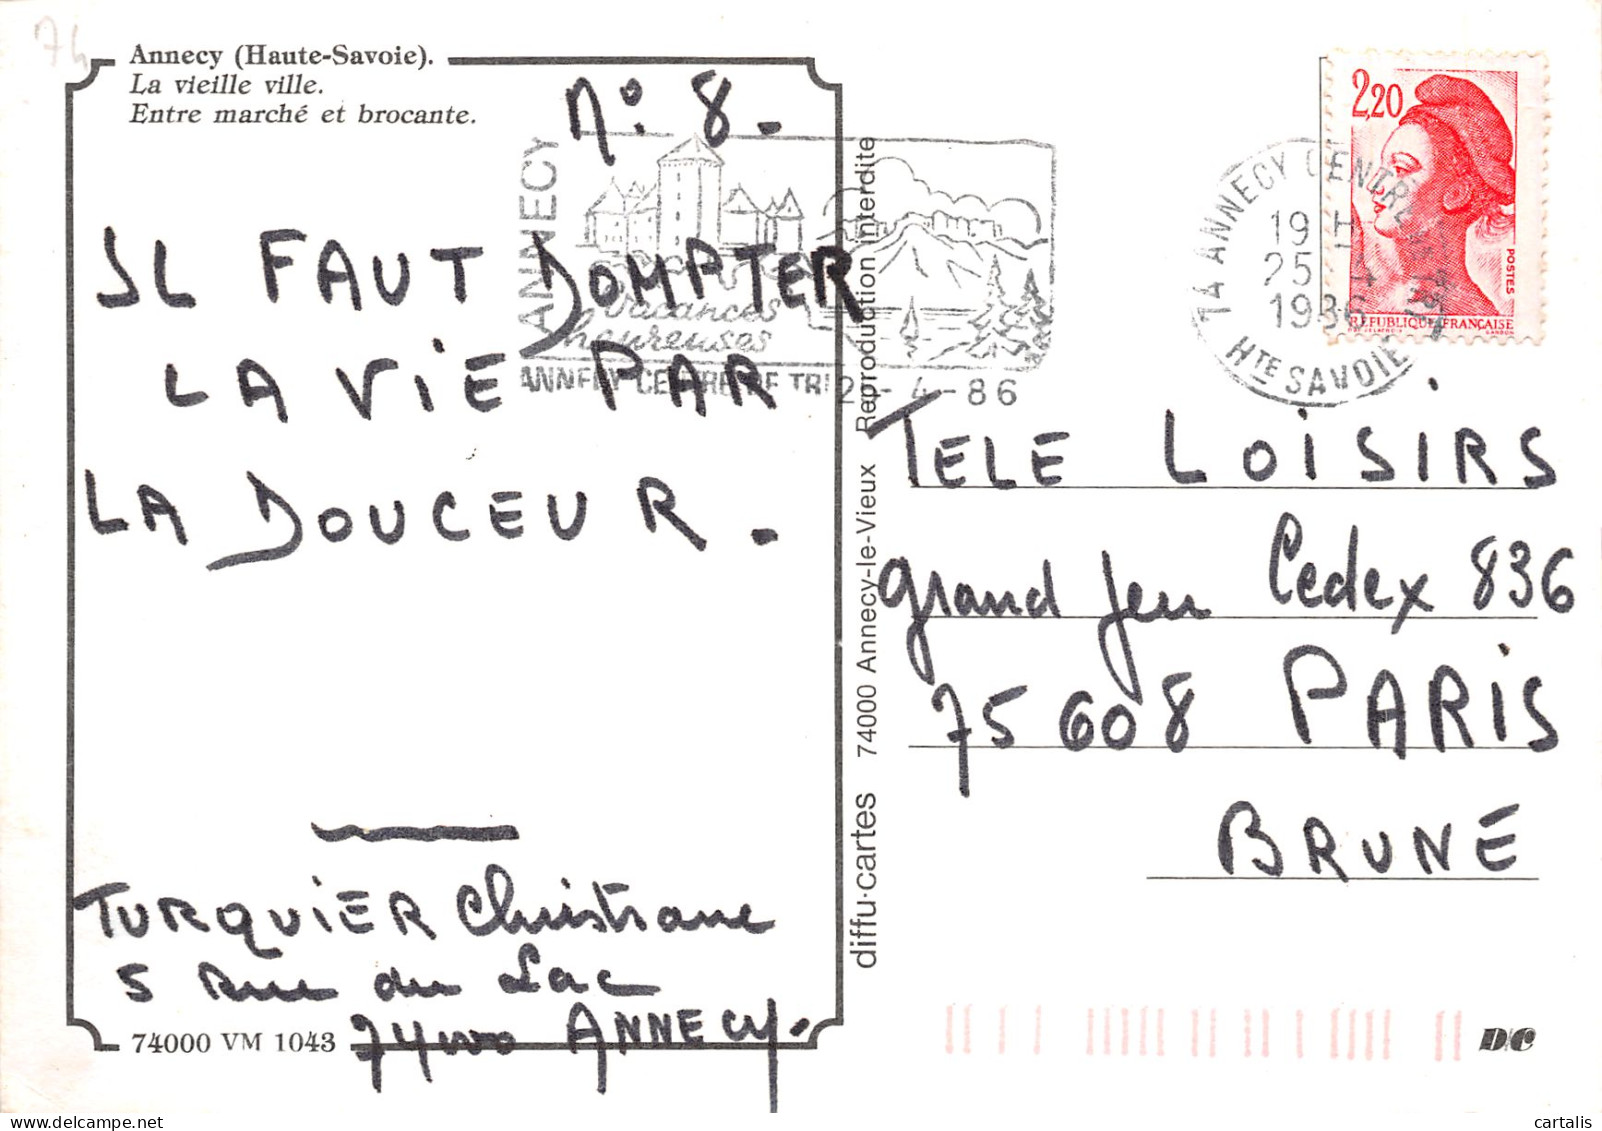 74
Annecy (Haute-Savoie).
La vieille ville.
Entre marché et brocante.
N° 8.
IL FAUT DOMPTER
LA VIE PAR
LA DOUCEUR.
TURQUIER Christiane
5 rue du Lac
74000 ANNECY.
74000 VM 1043
ANNECY
Vacances
heureuses
ANNECY CENTRE DE TRI
-4-86
Reproduction interdite
74000 Annecy-le-Vieux
diffu·cartes
74 ANNECY CENTRE DE TRI
19 H
25-4
1986
HTE SAVOIE
2,20
POSTES
REPUBLIQUE FRANÇAISE
TELE LOISIRS
grand jeu Cedex 836
75608 PARIS
BRUNE
D/C
cartalis
delcampe.net